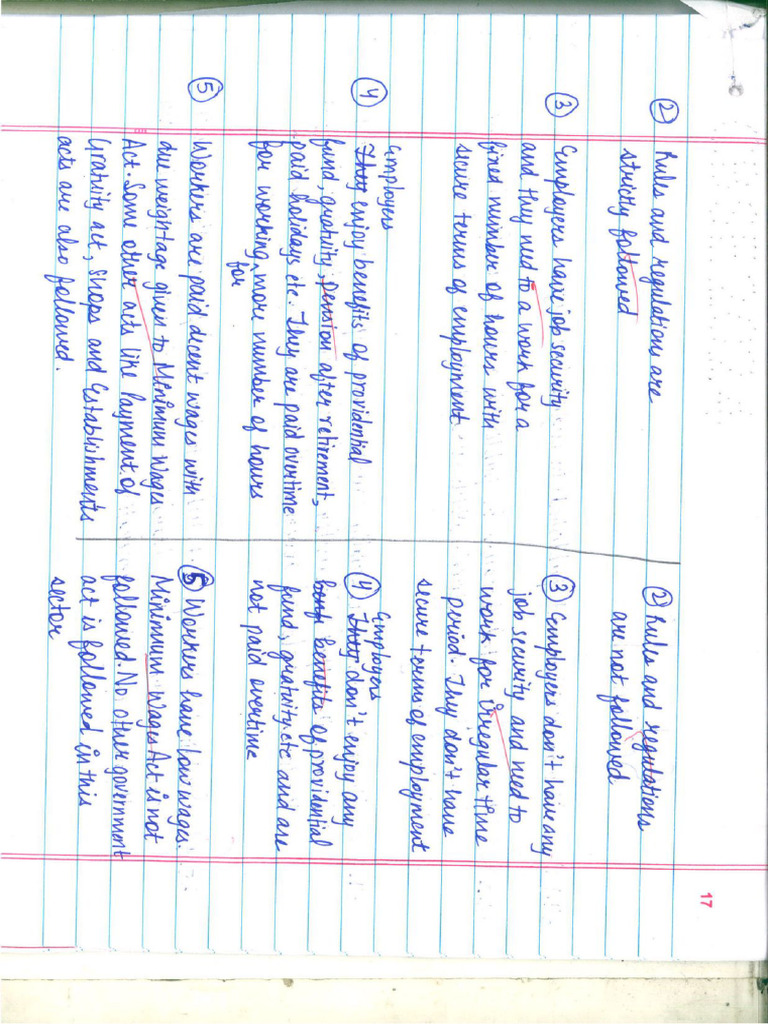 17
② Rules and regulations are
strictly followed
③ Employers have job security
and they need to a work for a
fixed number of hours with
secure terms of employment
Employers
④ They enjoy benefits of providential
fund, gratuity, pension after retirement,
paid holidays etc. They are paid overtime
for working, more number of hours
for
⑤ Workers are paid decent wages with
due weightage given to Minimum Wages
Act. Some other acts like Payment of
Gratuity act, Shops and Establishments
acts are also followed.
② Rules and regulations
are not followed
③ Employers don't have any
job security and need to
work for irregular time
period. They don't have
secure terms of employment
Employers
④ They don't enjoy any
benefits of providential
fund, gratuity etc and are
not paid overtime
⑤ Workers have low wages.
Minimum Wages Act is not
followed. No other government
act is followed in this
sector